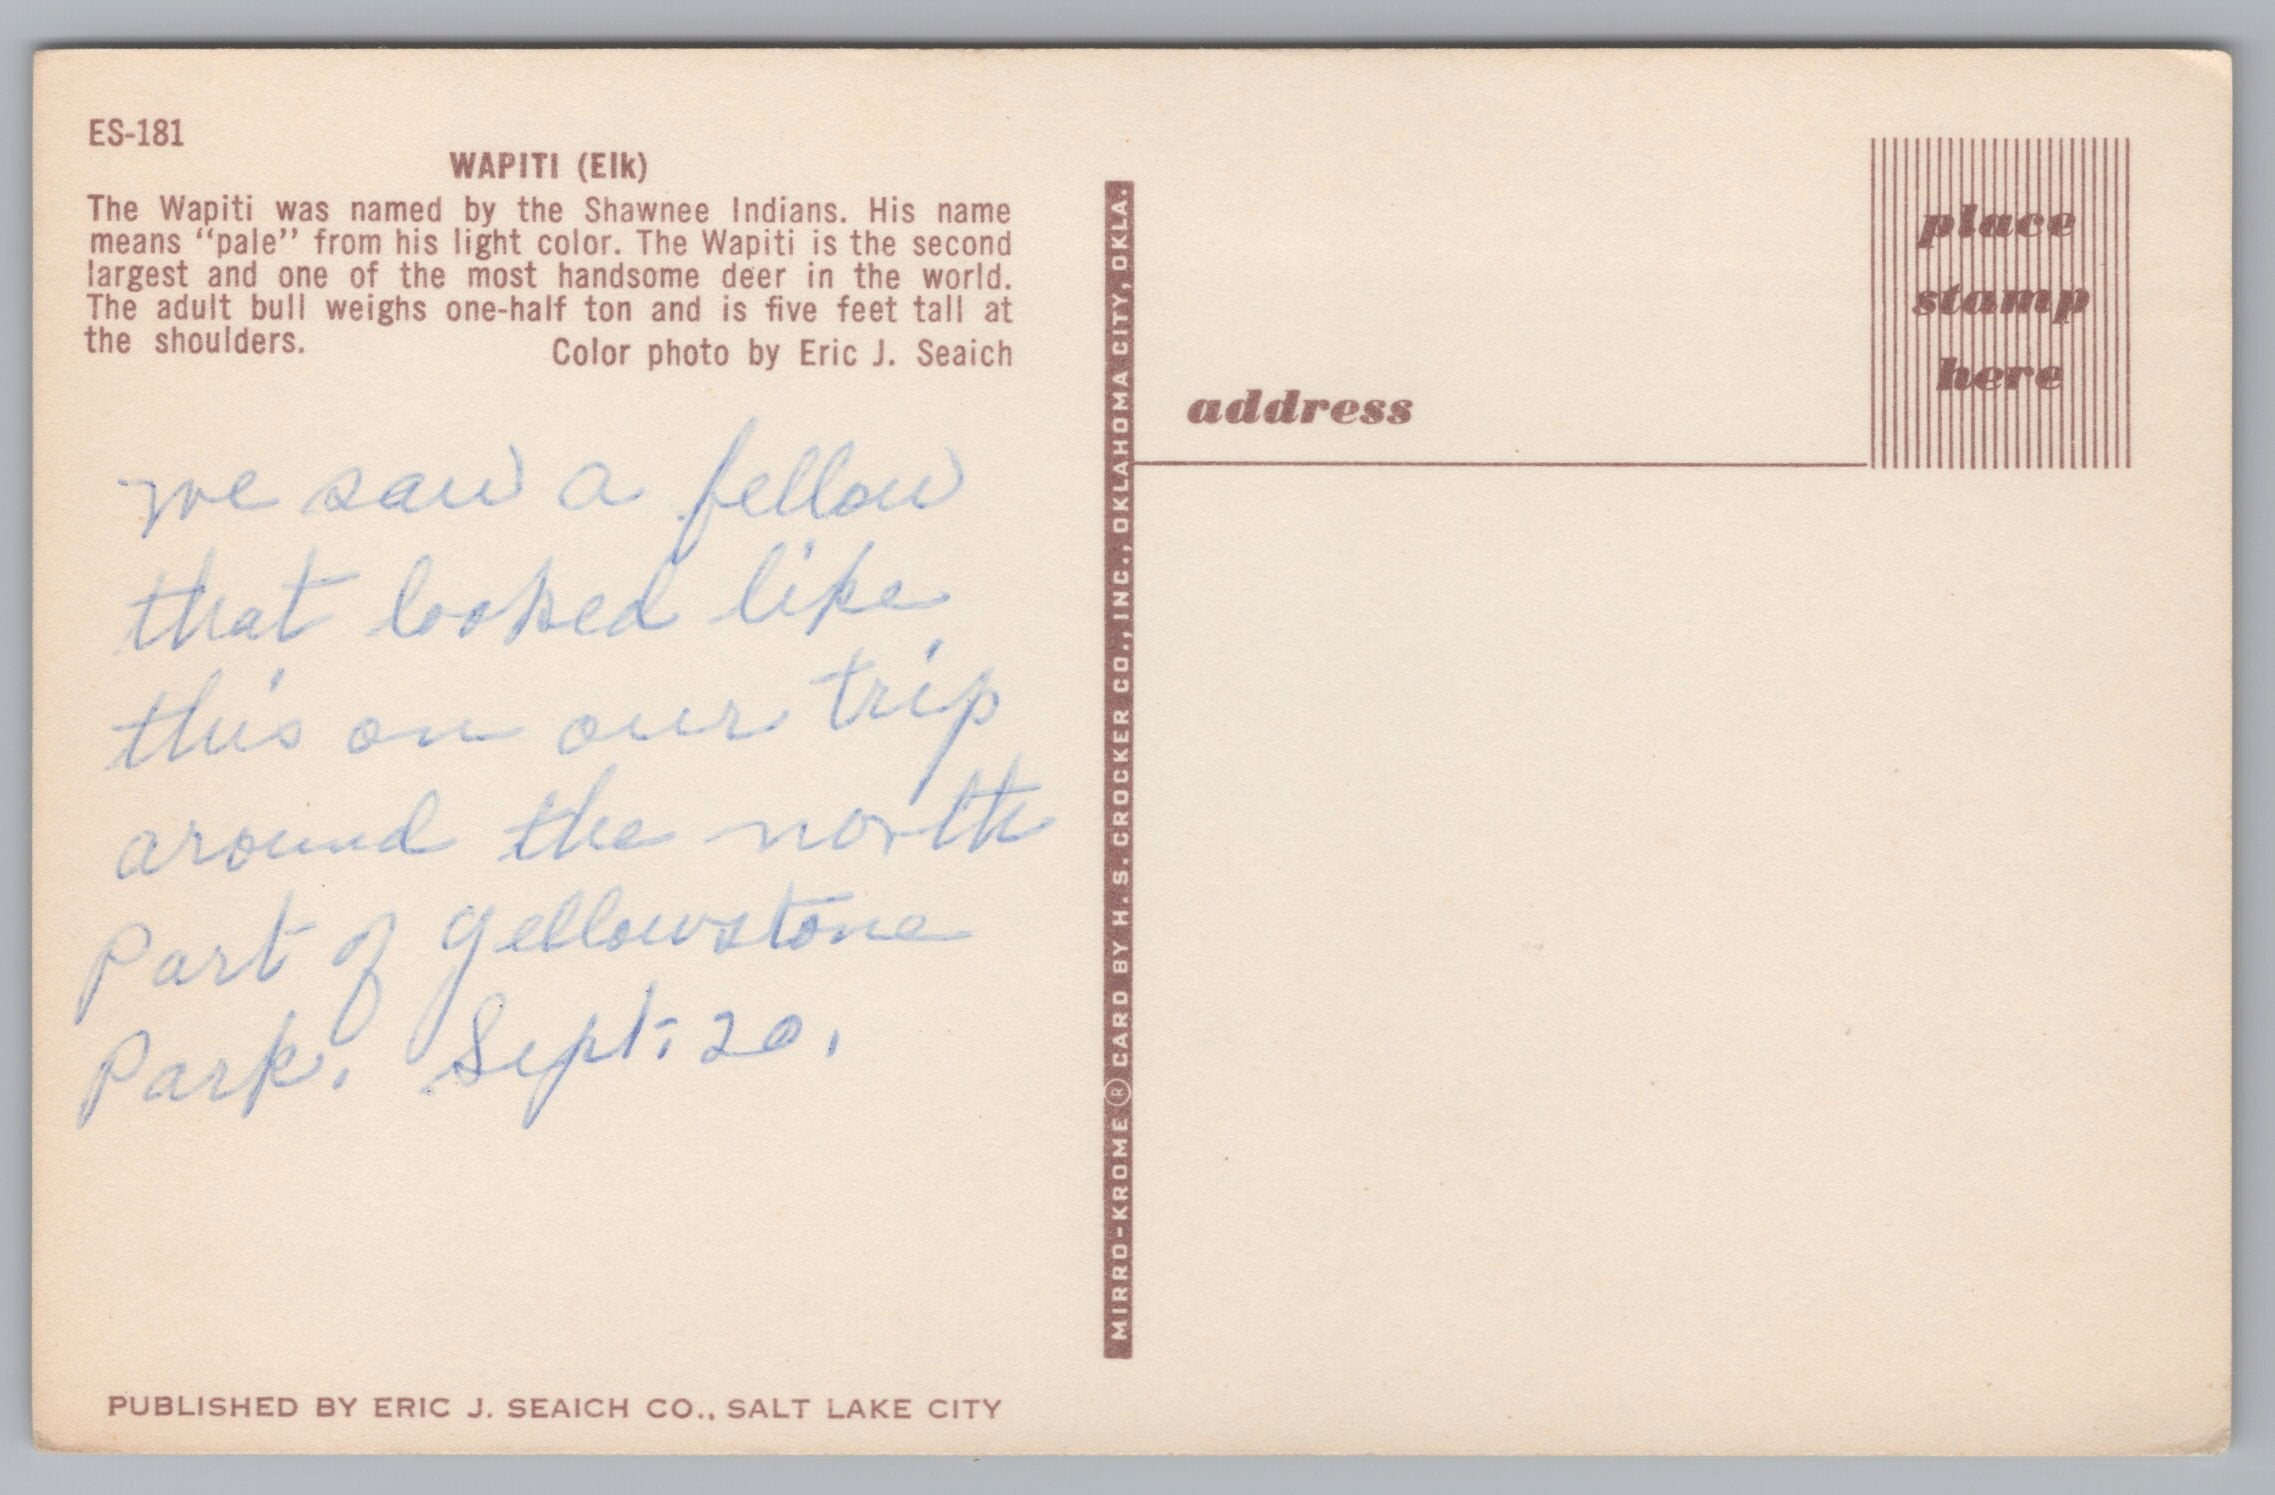 ES-181
WAPITI (Elk)
The Wapiti was named by the Shawnee Indians. His name
means "pale" from his light color. The Wapiti is the second
largest and one of the most handsome deer in the world.
The adult bull weighs one-half ton and is five feet tall at
the shoulders.
Color photo by Eric J. Seaich
we saw a fellow
that looked like
this on our trip
around the north
Part of Yellowstone
Park. Sept. 20.
PUBLISHED BY ERIC J. SEAICH CO., SALT LAKE CITY
MIRRO-KROME ® CARD BY H. S. CROCKER CO., INC., OKLAHOMA CITY, OKLA.
place
stamp
here
address